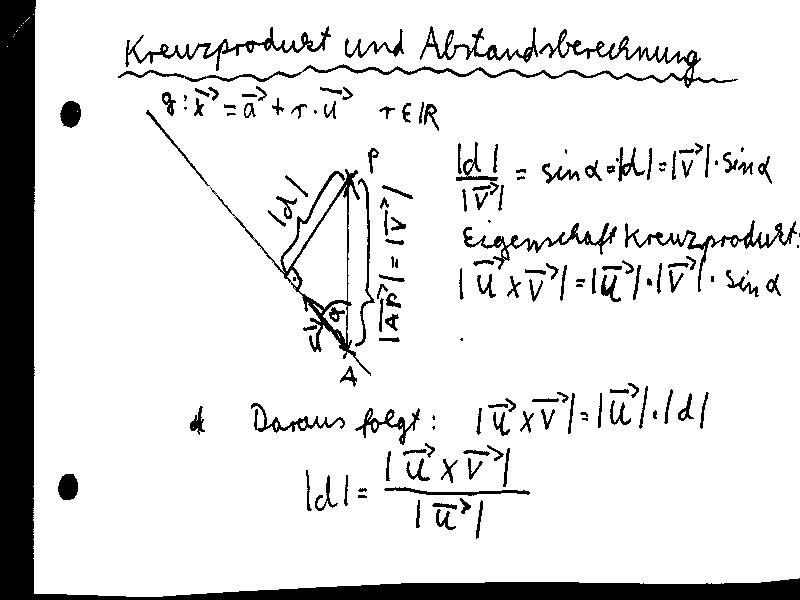 Kreuzprodukt und Abstandsberechnung
g: x⃗ = a⃗ + r · u⃗   r ∈ ℝ
P
|d|
|AP⃗| = |v⃗|
α
u⃗
A
|d| / |v⃗| = sin α ⇒ |d| = |v⃗| · sin α
Eigenschaft Kreuzprodukt:
|u⃗ × v⃗| = |u⃗| · |v⃗| · sin α
Daraus folgt: |u⃗ × v⃗| = |u⃗| · |d|
|d| = |u⃗ × v⃗| / |u⃗|